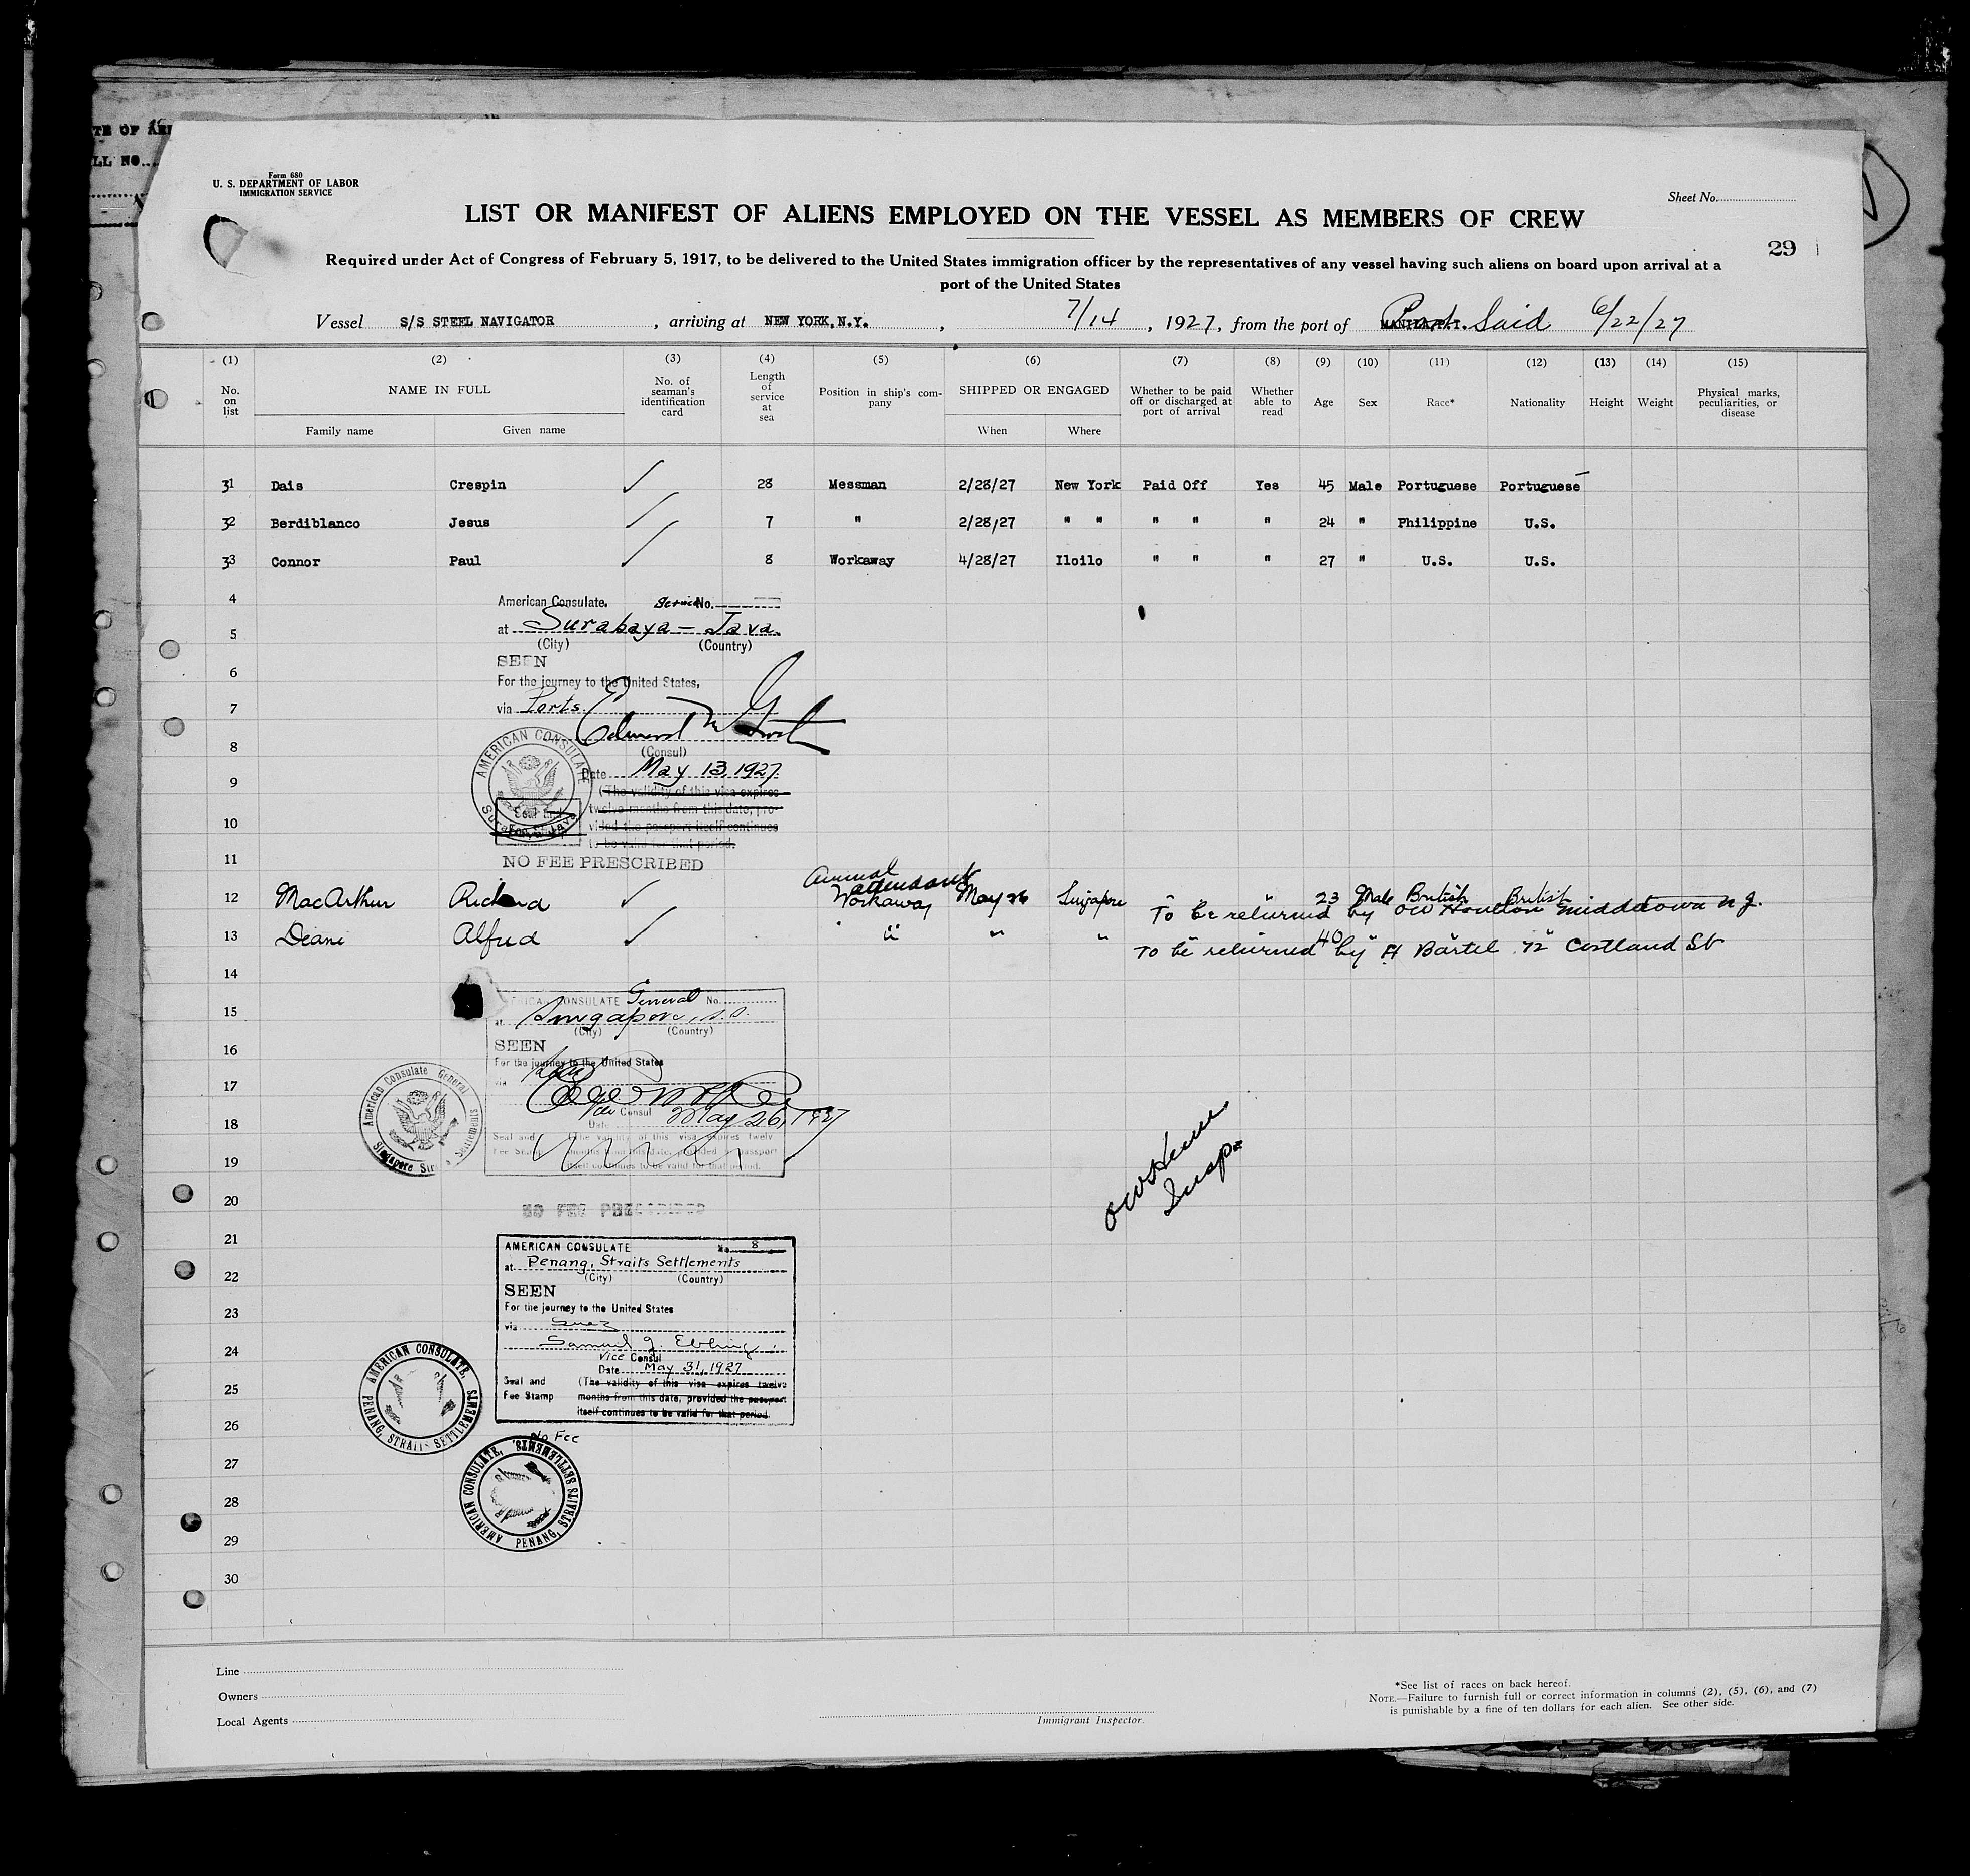 TE OF ARR
LL NO...
Form 680
U. S. DEPARTMENT OF LABOR
IMMIGRATION SERVICE
Sheet No.
LIST OR MANIFEST OF ALIENS EMPLOYED ON THE VESSEL AS MEMBERS OF CREW
29
Required under Act of Congress of February 5, 1917, to be delivered to the United States immigration officer by the representatives of any vessel having such aliens on board upon arrival at a
port of the United States
Vessel S/S STEEL NAVIGATOR, arriving at NEW YORK, N.Y., 7/14, 1927, from the port of Port Said 6/22/27
(1) (2) (3) (4) (5) (6) (7) (8) (9) (10) (11) (12) (13) (14) (15)
No. on list NAME IN FULL No. of seaman's identification card Length of service at sea Position in ship's company SHIPPED OR ENGAGED Whether to be paid off or discharged at port of arrival Whether able to read Age Sex Race* Nationality Height Weight Physical marks, peculiarities, or disease
Family name Given name When Where
31 Dais Crespin 28 Messman 2/28/27 New York Paid Off Yes 45 Male Portuguese Portuguese
32 Berdiblanco Jesus 7 " 2/28/27 " " " " " 24 " Philippine U.S.
33 Connor Paul 8 Workaway 4/28/27 Iloilo " " " 27 " U.S. U.S.
4
American Consulate. Service No.
5
at Surabaya - Java.
(City) (Country)
SEEN
6
For the journey to the United States,
7
via Ports.
8
(Consul)
AMERICAN CONSULATE
Surabaya, Java
Date May 13, 1927.
9
(The validity of this visa expires
twelve months from this date, pro-
10
vided the passport itself continues
to be valid for that period.
11
NO FEE PRESCRIBED
Animal attendant
12 MacArthur Richard Workaway May 26 Singapore " 23 Male British British
To be returned by OW Houston Middletown N.J.
13 Deane Alfred " " " " 40 " " "
To be returned by H Bartel 72 Cortland St
14
AMERICAN CONSULATE General No.
15
at Singapore, S.S.
(City) (Country)
16
SEEN
For the journey to the United States
17
via
Consul
18
Date May 26, 1927
Seal and Fee Stamp (The validity of this visa expires twelve
months from this date, provided the passport
19
itself continues to be valid for that period.
American Consulate General
Singapore Straits Settlements
Insp.
20
NO FEE PRESCRIBED
21
AMERICAN CONSULATE No. 8
22
at Penang, Straits Settlements
(City) (Country)
SEEN
23
For the journey to the United States
via Suez
24
Samuel J. Ebling
Vice Consul
Date May 31, 1927
25
Seal and Fee Stamp (The validity of this visa expires twelve
months from this date, provided the passport
itself continues to be valid for that period.
AMERICAN CONSULATE,
PENANG, STRAITS SETTLEMENTS
26
No Fee
27
AMERICAN CONSULATE,
PENANG, STRAITS SETTLEMENTS.
28
29
30
Line
Owners
Local Agents
Immigrant Inspector.
*See list of races on back hereof.
NOTE.—Failure to furnish full or correct information in columns (2), (5), (6), and (7)
is punishable by a fine of ten dollars for each alien. See other side.